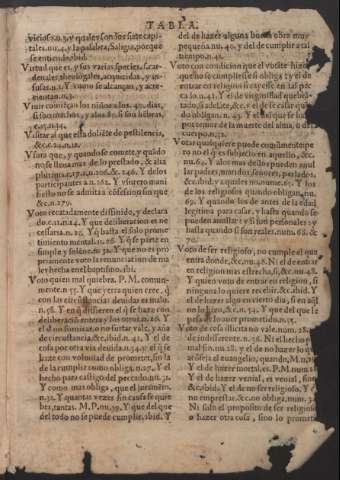 TABLA.
viciosa.n.3. y quales son los siete capi-
tales.nu.4. y la palabra, Saligia, porque
se entiende. ibid.
Virtud que es, y sus varias species,
denales, theologales, acquiridas, y in-
fusas.n.1. Y como se alcançan, y acre-
mientan.n.3.
Vivir comiençan los niños a los 40. dias,
si son machos, y a los 80. si son hembras.
c.15.n.34.
Visitar al que esta doliẽte de pestilencia,
&c.c.24.n.12.
Vsura que, y quando se comete, y quãdo
no se lleua mas de lo prestado, & alia
plurima.c.17. n.206.&c. 246. Y de los
participantes a n.262. Y usurero mani
fiesto no se admita a cõfession sin que
&c.n.279.
Voto recatadamente diffinido, y declara
do.c.12.n.24. Y que deliberaciõ es ne-
cessaria.n.25. Y q̃ basta el solo prome
timiento mental.n.26. Y q̃ se parte en
simple y solẽne.n.32. Y que no es pro
priamente voto la renunciacion de ma
ley hecha enel baptismo.ibi.
Voto quien mal quiebra, P.M. comun-
mente.n.55. Y que yerra quien cree, q̃
con las circunstancias deuidas es malo.
n.58. Y en q̃ difieren el q̃ se haze con
deliberaciõ mixta: y los otros.n.26. Y
el d no somitat.o no surtar vale, y aña
de circunstancia, &c.ibid.n.41. Y el de
cosa por otra via deuida.n.34. y el q̃ se
haze con voluntad de prometer, sin la
de la cumplir como obliga.n.27. Y el
hecho para castigo del pecado.nu.31.
Y como mas obliga, que el juramẽto.
n.32. Y quantas vezes sin causa se quie
bra, tantas. M.P. nu.39. Y que del que
del todo no se puede cumplir, ibid. Y
del de hazer alguna buena obra muy
pequeña nu.40. y del de cumplir a tal
tiempo.n.42.
Voto con condicion que el voto se hizo
que no se cumpliesse si obliga: y el de
entrar en religion si cayesse en tal pec
cado n.43. Y el de virginidad quebra-
tado, si adelãte, &c. y el de se casar quã-
do obligan. n. 45. Y el que se hizo
por temor de la muerte del alma, o del
cuerpo.n.52.
Votar qualquiere puede comũmente pe
ro no el q̃ es subjecto en aquello, &c.
nu.64. Y a los metus dellos pueden anul
lar padres, maridos, señores, prelados,
&c.ibid: y a quales ninguno.65. Y los
de los religiosos quando obligan, nu.
69. Y quando los de antes de la edad
legitima para casar, y hasta quando se
pueden annullar: y si son personales, y
hasta quando si son reales.numi. 68. &
70.
Voto de ser religioso, no cumple el que
entra donde, &c.nu.48. Ni el de entrar
en religion mas estrecha, si, &c.nu.48.
Y quien voto de entrar en religion, si
ninguno lo quiere recebir.&c.ibid. Y
el de hazer algo en cierto dia, si en aq̃l
no lo hizo, &c. n.52. Y que del que le
pesa auer voto prometido.n.53.
Voto de cosa illicita no vale.num.28.
de indifferente.n.36. Ni el hecho a mal
fin, sin mal. num.28. y el de no hazer lo q̃
acõseja el euangelio, quando, M.n.33.
Y el de hazer mortales. P.M.num.28.
Y el de hazer venial, es venial, sino
&c.ibid.: Y el de no ser religioso. Y de
no emprestar.&c. no obliga. num.35.
Ni salir proposito de ser religioso
o hazer otra cosa, sino lo prometio